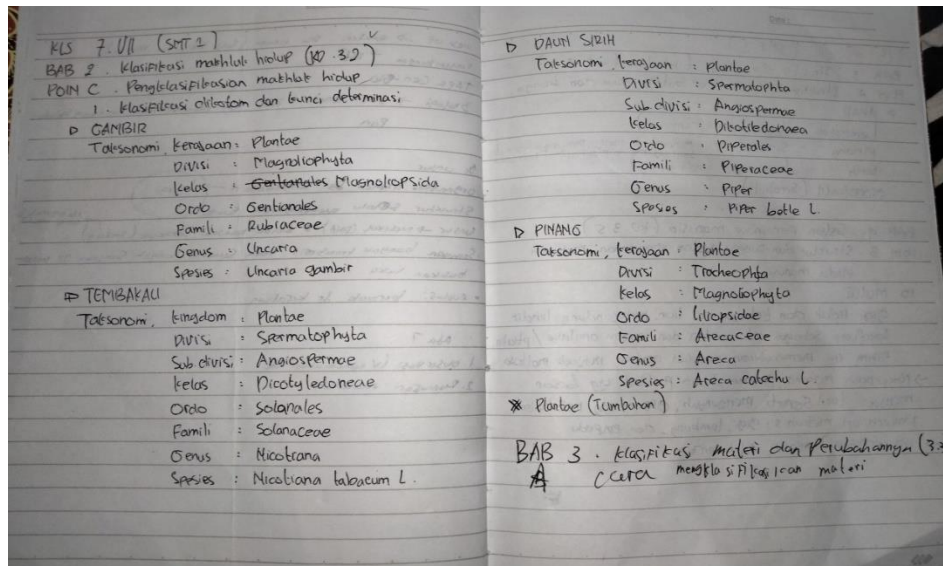 KLS 7. VII (SMT 1)
BAB 2. Klasifikasi makhluk hidup (KD 3.2)
POIN C. Pengklasifikasian makhluk hidup
1. Klasifikasi dikotom dan kunci determinasi
▷ GAMBIR
Taksonomi, Kerajaan : Plantae
Divisi : Magnoliophyta
Kelas : Gentianales Magnoliopsida
Ordo : Gentianales
Famili : Rubiaceae
Genus : Uncaria
Spesies : Uncaria gambir
▷ TEMBAKAU
Taksonomi, kingdom : Plantae
Divisi : Spermatophyta
Sub divisi : Angiospermae
Kelas : Dicotyledoneae
Ordo : Solanales
Famili : Solanaceae
Genus : Nicotiana
Spesies : Nicotiana tabacum L.
▷ DAUN SIRIH
Taksonomi, kerajaan : Plantae
Divisi : Spermatophta
Sub divisi : Angiospermae
Kelas : Dikotiledonaea
Ordo : Piperales
Famili : Piperaceae
Genus : Piper
Spesies : Piper betle L.
▷ PINANG
Taksonomi, kerajaan : Plantae
Divisi : Tracheophta
Kelas : Magnoliophyta
Ordo : Liliopsidae
Famili : Arecaceae
Genus : Areca
Spesies : Areca catechu L.
* Plantae (Tumbuhan)
BAB 3. Klasifikasi materi dan Perubahannya (3.3
A Ccara mengklasifikasikan materi